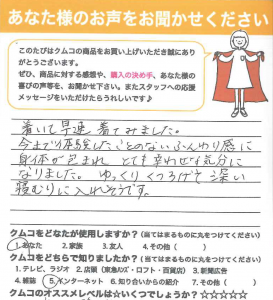 あなた様のお声をお聞かせください
このたびはクムコの商品をお買い上げいただき誠にあり
がとうございます。
ぜひ、商品に対する感想や、購入の決め手、あなた様の
喜びの声等を、お聞かせ下さい。またスタッフへの応援
メッセージをいただけたらうれしいです♪
着いて早速 着てみました。
今まで体験したことのないふんわり感に
身体が包まれ とても幸わせな気分に
なりました。ゆっくり くつろげそう 深い
寝むりに入れそうです。
クムコをどなたが使用しますか？（当てはまるものに丸をつけてください）
1.あなた 2.家族 3.友人 4.その他（ ）
クムコをどちらで知りましたか？（当てはまるものに丸をつけてください）
1.テレビ、ラジオ 2.店頭（東急ハンズ・ロフト・百貨店） 3.新聞広告
4.雑誌 5.インターネット 6.知り合いからの紹介 7.その他（ ）
クムコのオススメレベルは☆いくつでしょうか？☆☆☆☆☆